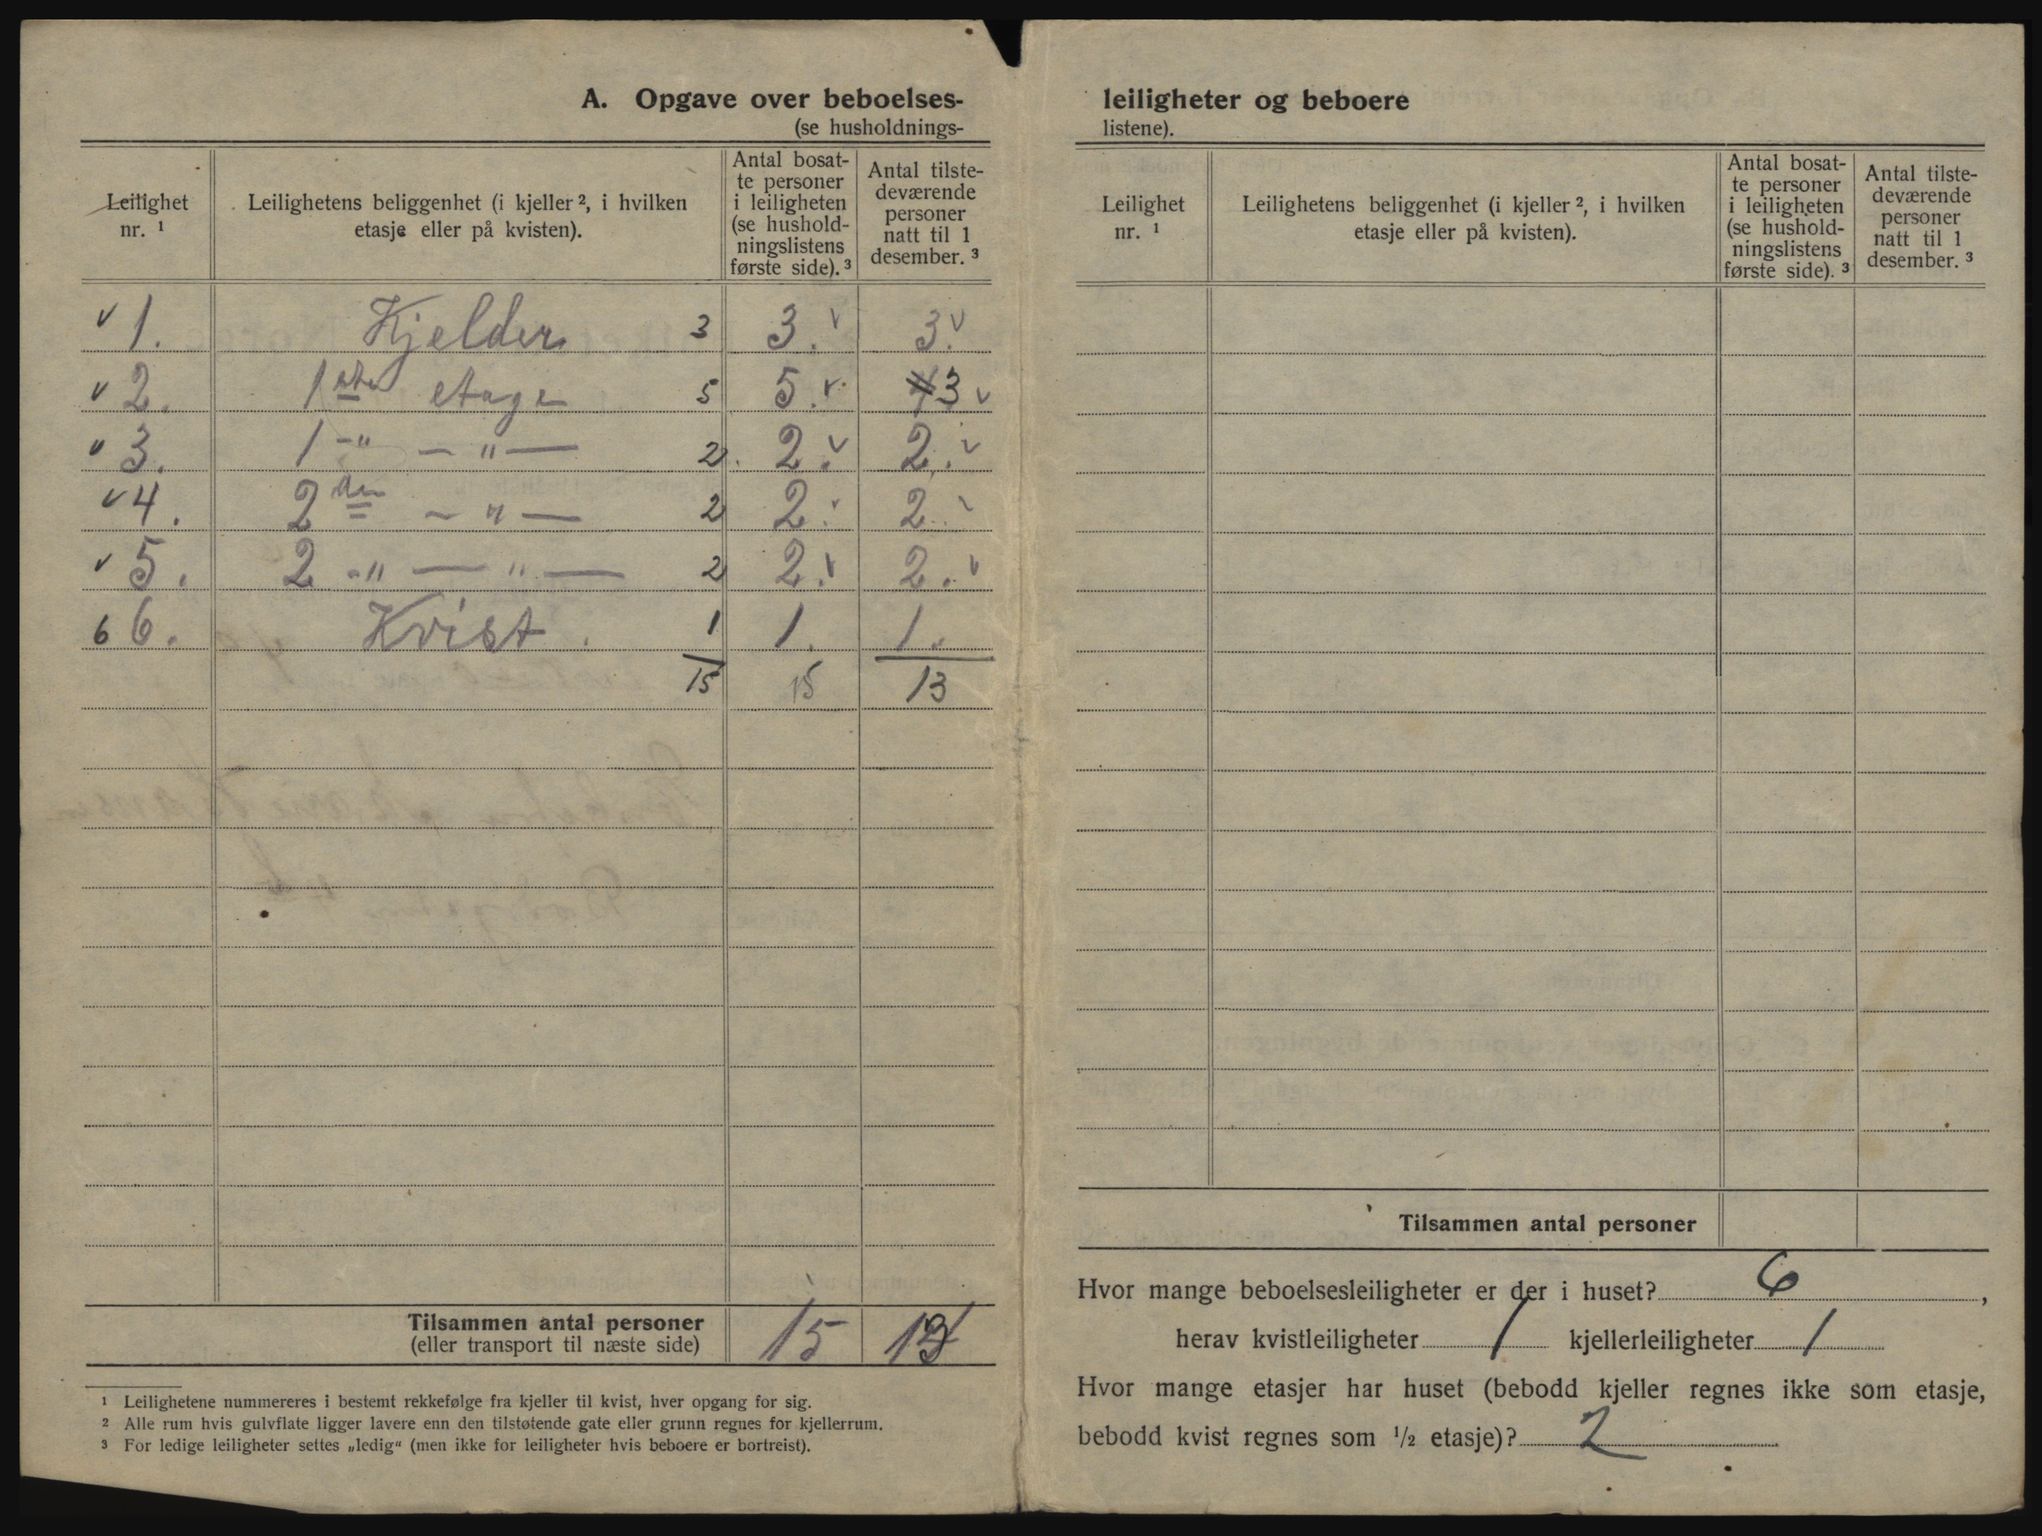 A. Opgave over beboelses-
(se husholdnings-
Leilighet nr. ¹
Leilighetens beliggenhet (i kjeller ², i hvilken etasje eller på kvisten).
Antal bosat-te personer i leiligheten (se hushold-ningslistens første side). ³
Antal tilste-deværende personer natt til 1 desember. ³
v 1. Kjelder 3 3. v 3. v
v 2. 1ste etage 5 5. v 4 3 v
v 3. 1 -"- — " — 2 2. v 2. v
v 4. 2den — " — 2 2. v 2. v
v 5. 2 -"- — " — 2 2. v 2. v
6 6. Kvist. 1 1. 1. v
15 15 13
Tilsammen antal personer
(eller transport til næste side) 15 13
¹ Leilighetene nummereres i bestemt rekkefølge fra kjeller til kvist, hver opgang for sig.
² Alle rum hvis gulvflate ligger lavere enn den tilstøtende gate eller grunn regnes for kjellerrum.
³ For ledige leiligheter settes „ledig“ (men ikke for leiligheter hvis beboere er bortreist).
leiligheter og beboere
listene).
Leilighet nr. ¹
Leilighetens beliggenhet (i kjeller ², i hvilken etasje eller på kvisten).
Antal bosat-te personer i leiligheten (se hushold-ningslistens første side). ³
Antal tilste-deværende personer natt til 1 desember. ³
Tilsammen antal personer
Hvor mange beboelsesleiligheter er der i huset? 6,
herav kvistleiligheter 1 kjellerleiligheter 1
Hvor mange etasjer har huset (bebodd kjeller regnes ikke som etasje,
bebodd kvist regnes som ½ etasje)? 2